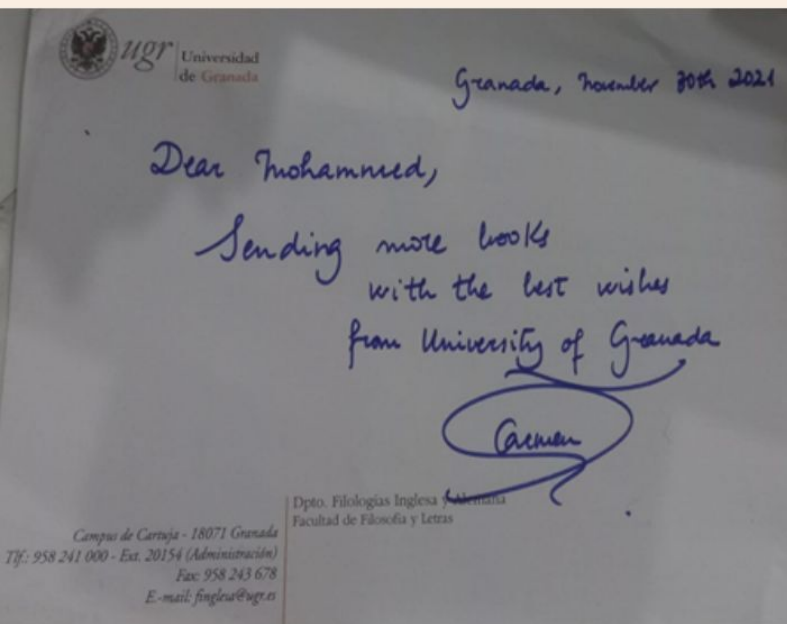 ugr Universidad
de Granada
Granada, november 30th 2021
Dear Mohammed,
Sending more books
with the best wishes
from University of Granada
Carmen
Dpto. Filologías Inglesa y Alemana
Facultad de Filosofía y Letras
Campus de Cartuja - 18071 Granada
Tlf.: 958 241 000 - Ext. 20154 (Administración)
Fax: 958 243 678
E-mail: finglesa@ugr.es